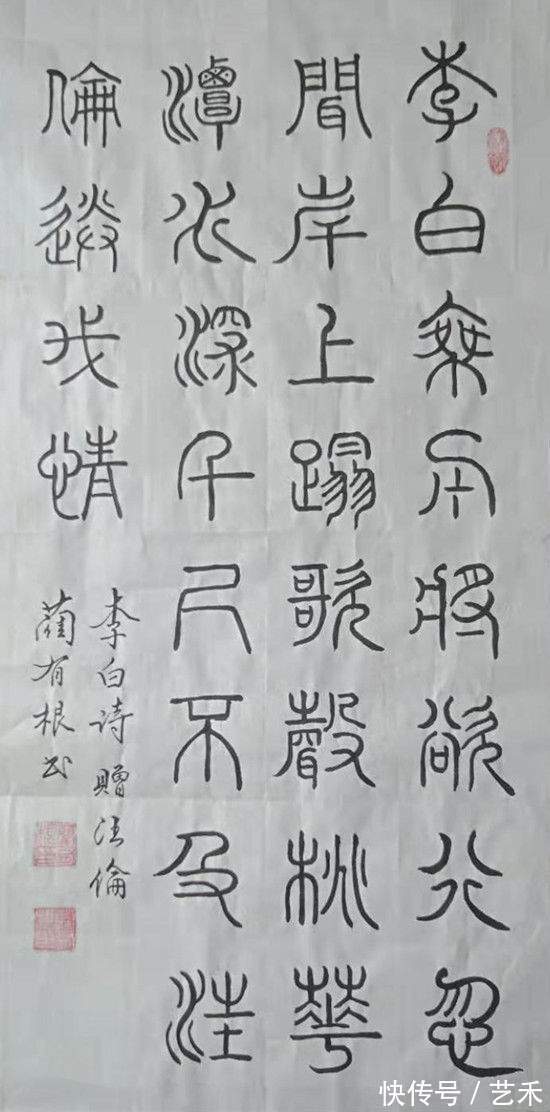 李白乘舟將欲行忽
聞岸上蹋歌聲桃華
潭水深千尺不及汪
倫送我情
李白诗贈汪倫
有根书
快传号 / 艺禾